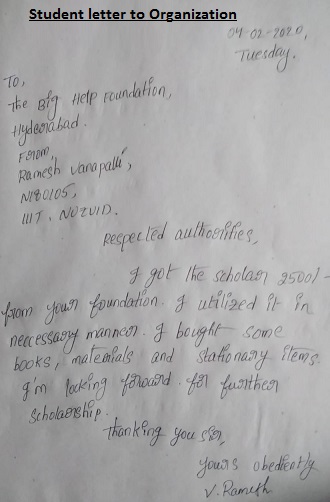 Student letter to Organization
04-02-2020,
Tuesday.
To,
The Big Help Foundation,
Hyderabad.
From,
Ramesh Vanapalli,
N180105,
IIIT, NUZVID.
Respected authorities,
I got the scholar 2500/-
from your foundation. I utilized it in
neccessary manner. I bought some
books, materials and stationary items.
I'm looking forward for further
Scholarship.
Thanking you sir,
yours obediently
V. Ramesh